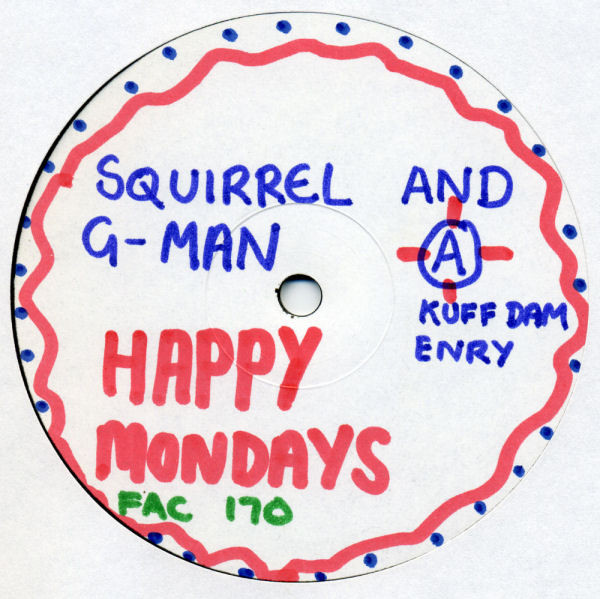 SQUIRREL AND
G-MAN
A
KUFF DAM
ENRY
HAPPY
MONDAYS
FAC 170